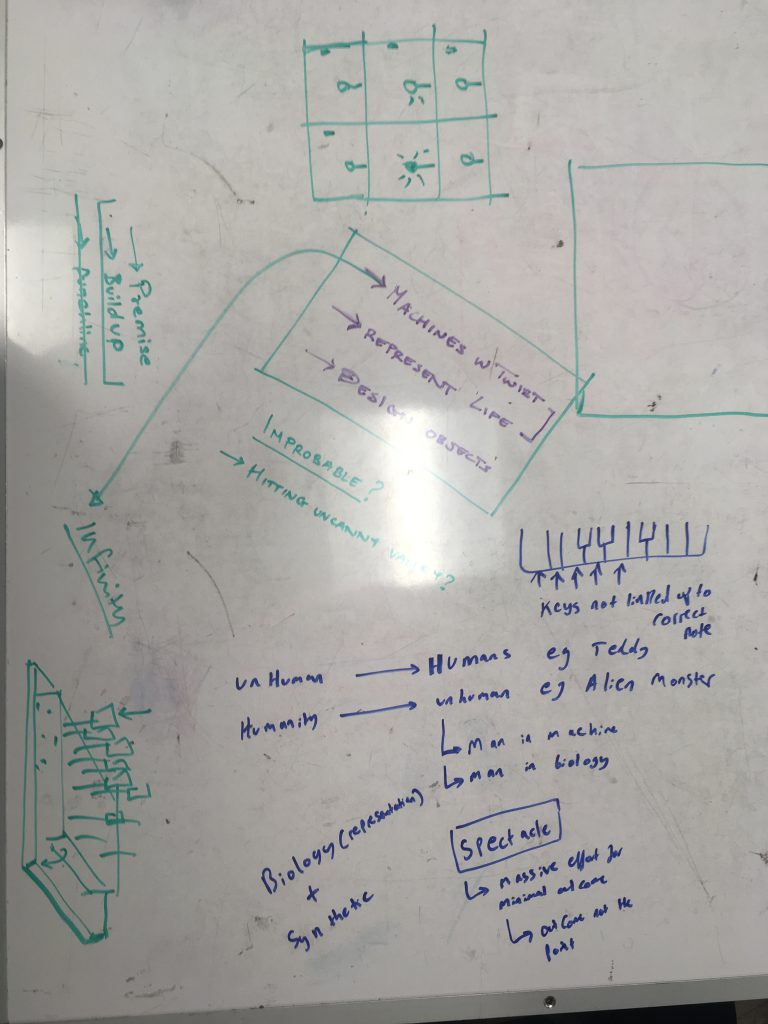 → Premise
→ Build up
→ Punchline
→ MACHINES W TWIRT
→ REPRESENT LIFE
→ DESIGN OBJECTS
IMPROBABLE?
→ HITTING UNCANNY VALLEY?
Infinity
Keys not linked up to
correct
note
unHuman → Humans eg Teddy
Humanity → unhuman eg Alien Monster
↳ Man in machine
↳ man in biology
Biology (representation)
+
Synthetic
Spectacle
↳ massive effort for
minimal outcome
↳ outcome not the
point